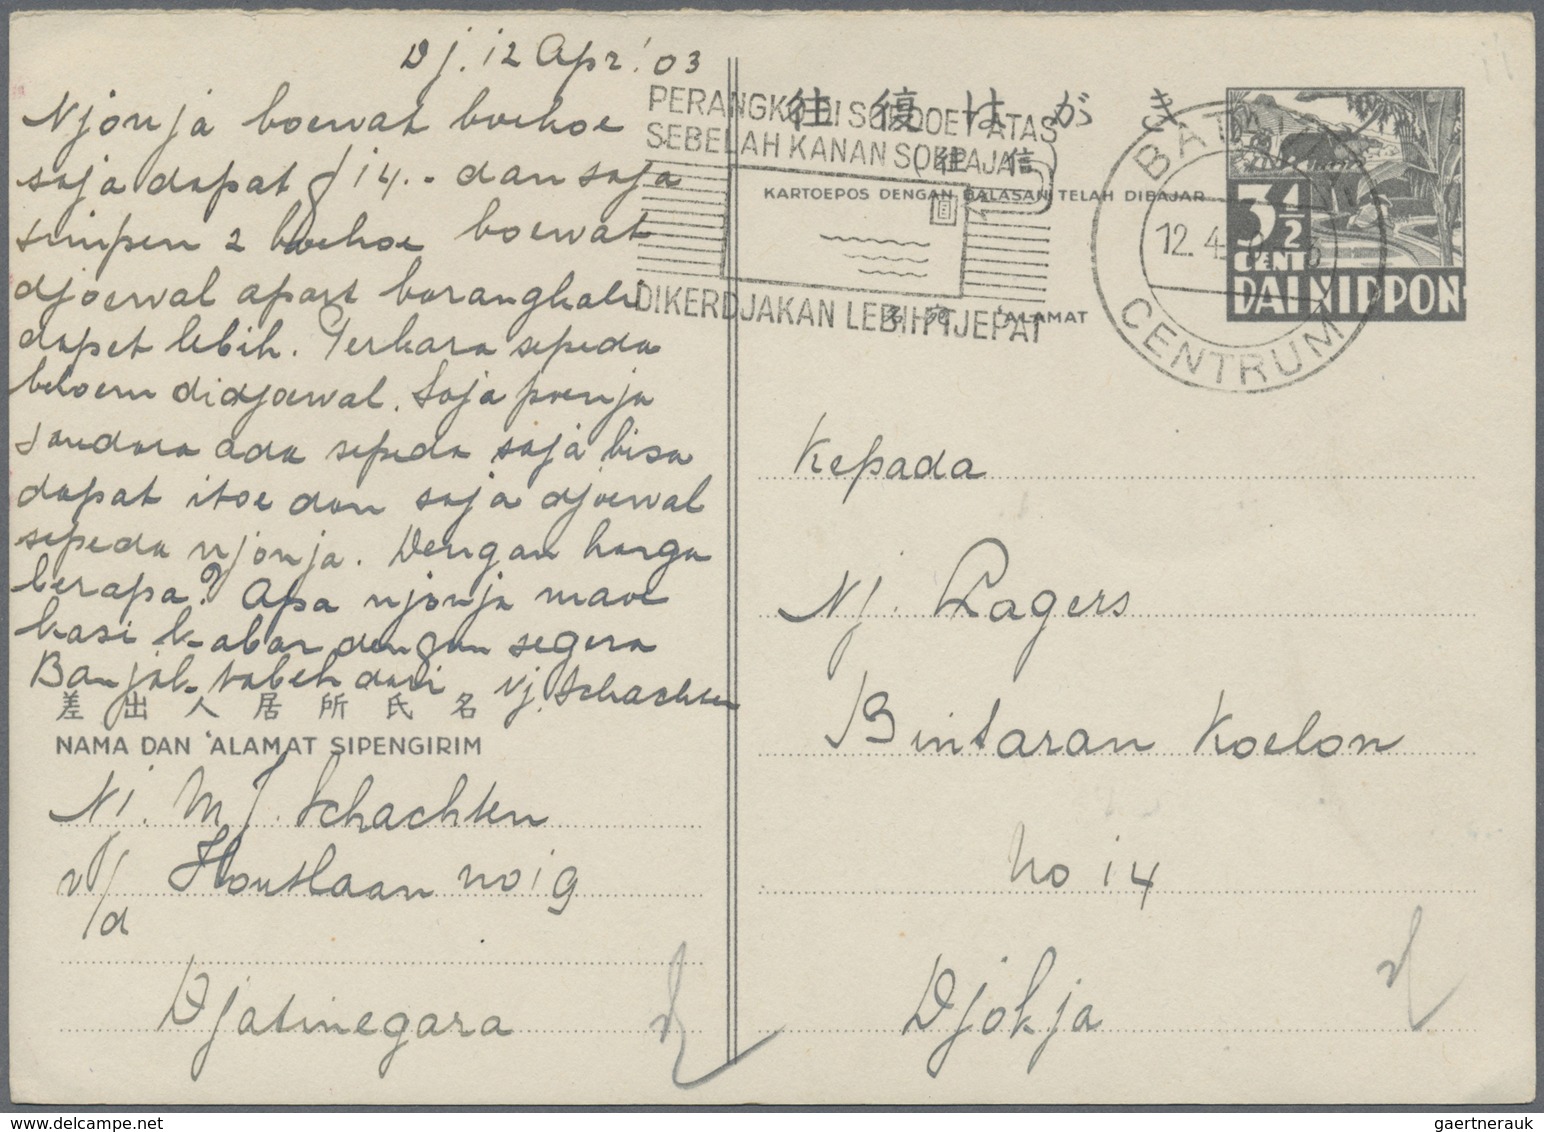 Dj. 12 Apr. '03
Njonja boewat boekoe
saja dapat f 14.- dan saja
simpen 2 boekoe boewat
djoewal apart barangkali
dapet lebih. Perkara sepeda
beloem didjoewal. Saja poenja
soudara ada sepeda saja bisa
dapat itoe dan saja djoewal
sepeda njonja. Dengan harga
berapa? Apa njonja maoe
kasi kabar dengan segera
Banjak tabeh dari Nj. Schachten
差出人居所氏名
NAMA DAN 'ALAMAT SIPENGIRIM
Nj. M J. Schachten
v/d Houtlaan no 19
Djatinegara
PERANGKO DI SOEDOET ATAS
SEBELAH KANAN SOEPAJA
DIKERDJAKAN LEBIH TJEPAT
往復はがき
(往信
KARTOEPOS DENGAN BALASAN TELAH DIBAJAR
'ALAMAT
BATAVIA
12.4
CENTRUM
3 1/2
CENT
DAI NIPPON
Kepada
Nj. Lagers
Bintaran Koelon
No 14
Djokja
gaertnerauk